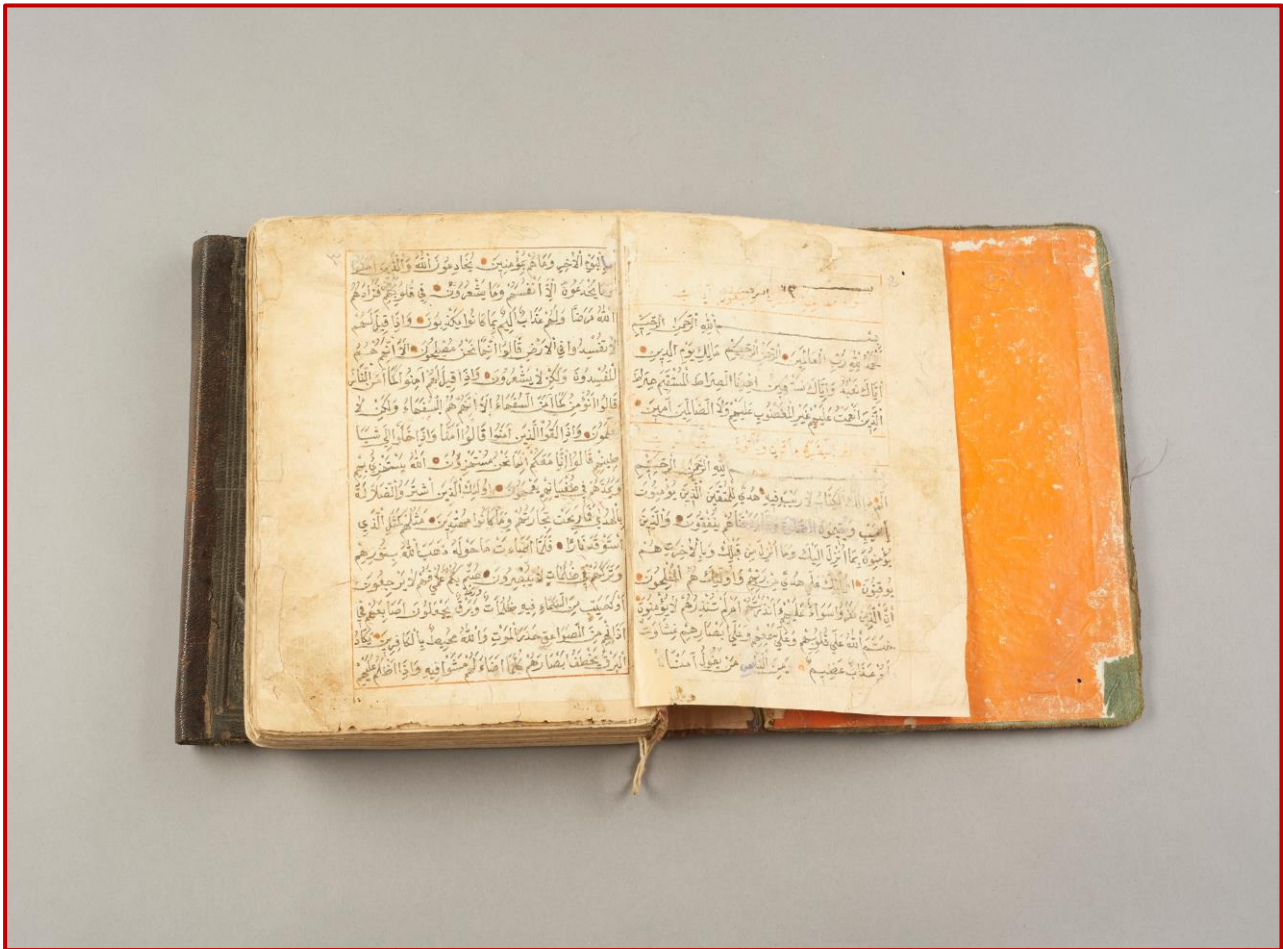 بسم الله الرحمن الرحيم
الحمد لله رب العالمين الرحمن الرحيم مالك يوم الدين
اياك نعبد واياك نستعين اهدنا الصراط المستقيم صراط
الذين انعمت عليهم غير المغضوب عليهم ولا الضالين امين
بسم الله الرحمن الرحيم
الم ذلك الكتاب لا ريب فيه هدى للمتقين الذين يؤمنون
بالغيب ويقيمون رزقناهم ينفقون والذين
يؤمنون بما انزل اليك وما انزل من قبلك وبالاخرة هم
يوقنون اولئك على هدى من ربهم واولئك هم المفلحون
ان الذين كفروا سواء عليهم ءانذرتهم ام لم تنذرهم لا يؤمنون
ختم الله على قلوبهم وعلى سمعهم وعلى ابصارهم غشاوة
عذاب عظيم ومن الناس من يقول امنا
باليوم الاخر وما هم بمؤمنين يخادعون الله والذين امنوا
وما يخدعون الا انفسهم وما يشعرون في قلوبهم فزادهم
الله مرضا ولهم عذاب اليم بما كانوا يكذبون واذا قيل لهم
لا تفسدوا في الارض قالوا انما نحن مصلحون الا انهم هم
المفسدون ولكن لا يشعرون واذا قيل لهم امنوا كما امن الناس
قالوا انؤمن كما امن السفهاء الا انهم هم السفهاء ولكن لا
يعلمون واذا لقوا الذين امنوا قالوا امنا واذا خلوا الى شيا
طينهم قالوا انا معكم انما نحن مستهزؤن الله يستهزئ بهم
ويمدهم في طغيانهم يعمهون اولئك الذين اشتروا الضلالة
بالهدى فما ربحت تجارتهم وما كانوا مهتدين مثلهم كمثل الذي
استوقد نارا فلما اضاءت ما حوله ذهب الله بنورهم
وتركهم في ظلمات لا يبصرون صم بكم عمي فهم لا يرجعون
او كصيب من السماء فيه ظلمات ورعد وبرق يجعلون اصابعهم في
اذانهم من الصواعق حذر الموت والله محيط بالكافرين يكاد
البرق يخطف ابصارهم كلما اضاء لهم مشوا فيه واذا اظلم عليهم